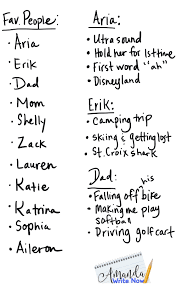 Fav. People:
· Aria
· Erik
· Dad
· Mom
· Shelly
· Zack
· Lauren
· Katie
· Katrina
· Sophia
· Aileron
Aria:
· Utrasound
· Hold her for 1st time
· First word "ah"
· Disneyland
Erik:
· Camping trip
· Skiing & getting lost
· St. Croix shark
Dad:
· Falling off his bike
· Making me play softball
· Driving golf cart
Amanda
Write Now